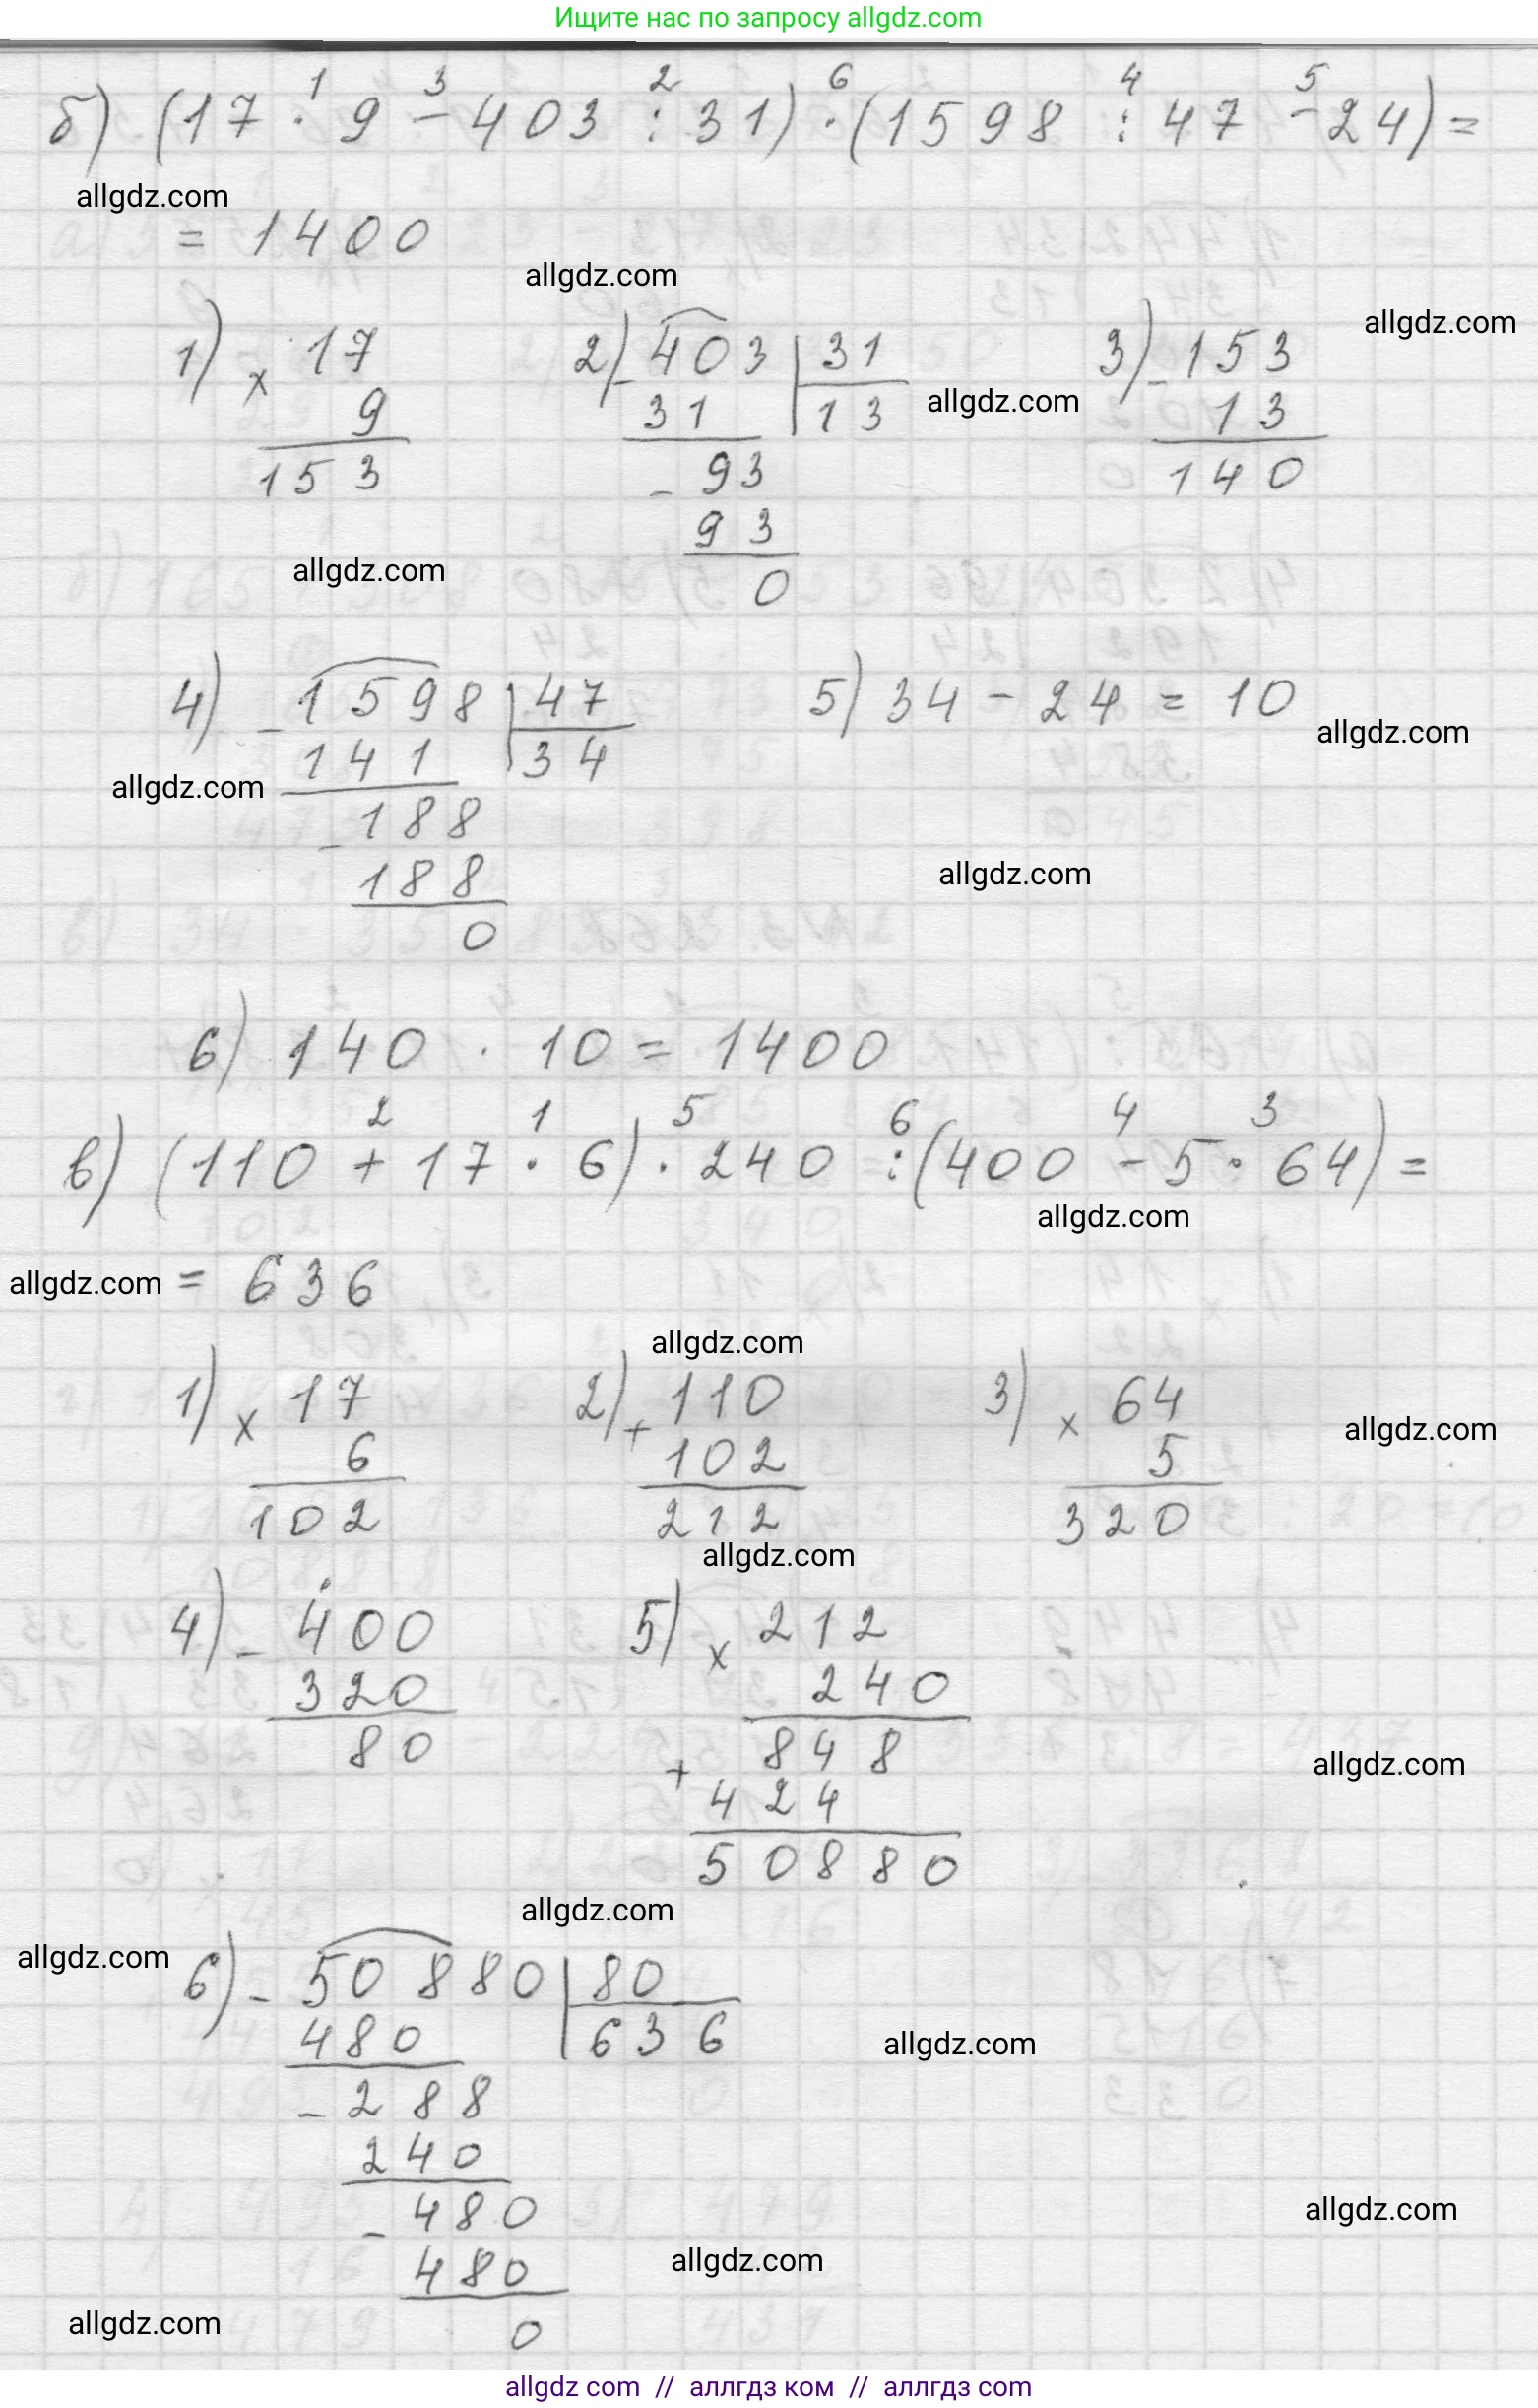 Ищите нас по запросу allgdz.com
1 3 2 6 4 5
б) (17 · 9 − 403 : 31) · (1598 : 47 − 24) =
allgdz.com
= 1400
allgdz.com
allgdz.com
1) × 17 2) − 403 31 3) − 153
9 31 13 allgdz.com 13
153 − 93 140
93
allgdz.com
0
4) − 1598 47 5) 34 − 24 = 10
allgdz.com
allgdz.com 141 34
− 188
188 allgdz.com
0
6) 140 · 10 = 1400
2 1 5 6 4 3
в) (110 + 17 · 6) · 240 : (400 − 5 · 64) =
allgdz.com
allgdz.com = 636
allgdz.com
1) × 17 2) + 110 3) × 64
allgdz.com
6 102 5
102 212 320
allgdz.com
4) − 400 5) × 212
320 240
80 + 848
allgdz.com
424
50880
allgdz.com
allgdz.com 6) − 50880 80
480 636 allgdz.com
− 288
240
− 480 allgdz.com
480 allgdz.com
allgdz.com 0
allgdz com // аллгдз ком // аллгдз com